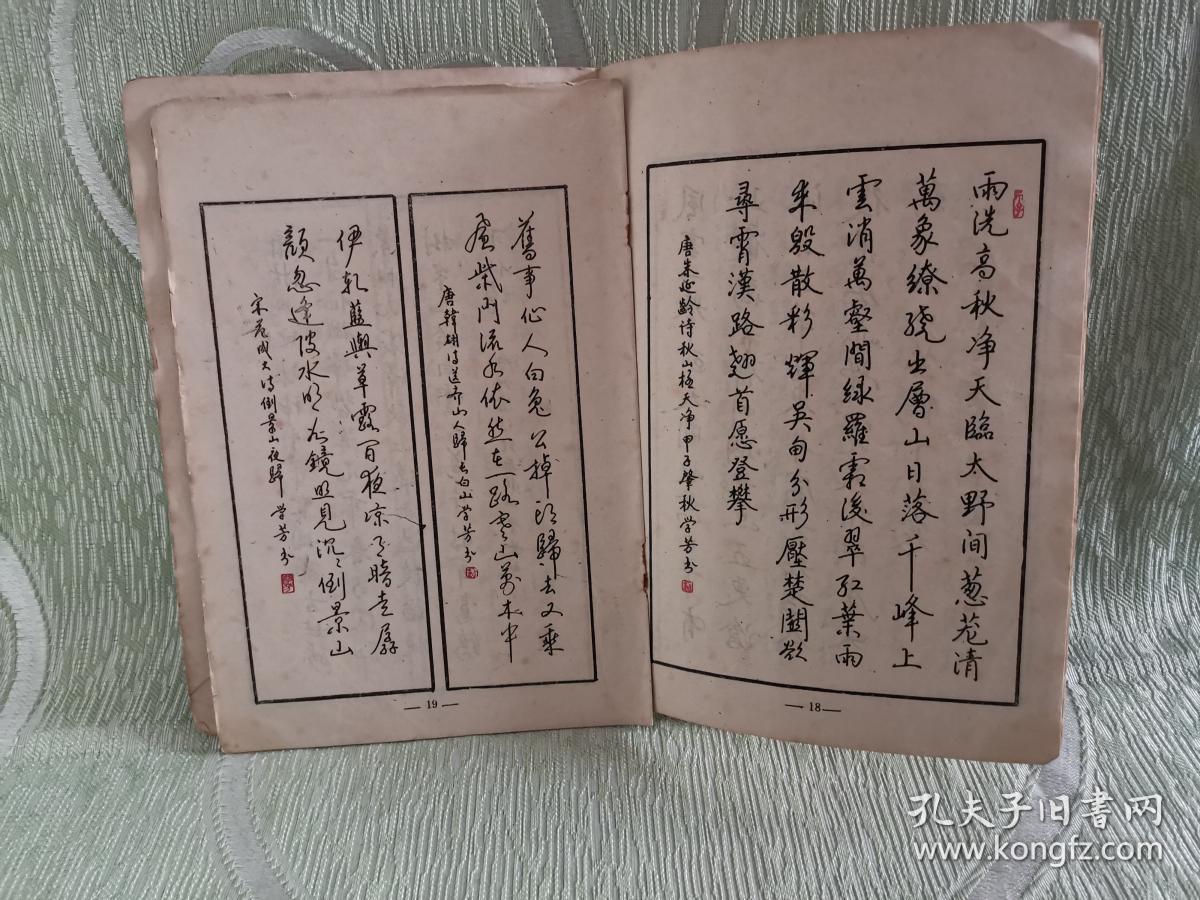 雨洗高秋净天臨太野间葱茏清
萬象繚绕出層山日落千峰上
雲消萬壑間绿羅霜後翠红葉雨
来殷散彩輝吴甸分形壓楚關欲
尋霄漢路翘首愿登攀
唐朱延龄诗秋山极天净甲子肇秋学芳书
—18—
舊事仙人白兔公掉头歸去又乘
风柴门流水依然在一路寒山萬木中
唐韓翃诗送齐山人歸长白山学芳书
伊軋藍輿草露间夜凉月暗走孱
顏忽逢陂水明如鏡照見沉沉倒景山
宋范成大诗倒景山夜歸 学芳书
—19—
孔夫子旧书网
www.kongfz.com